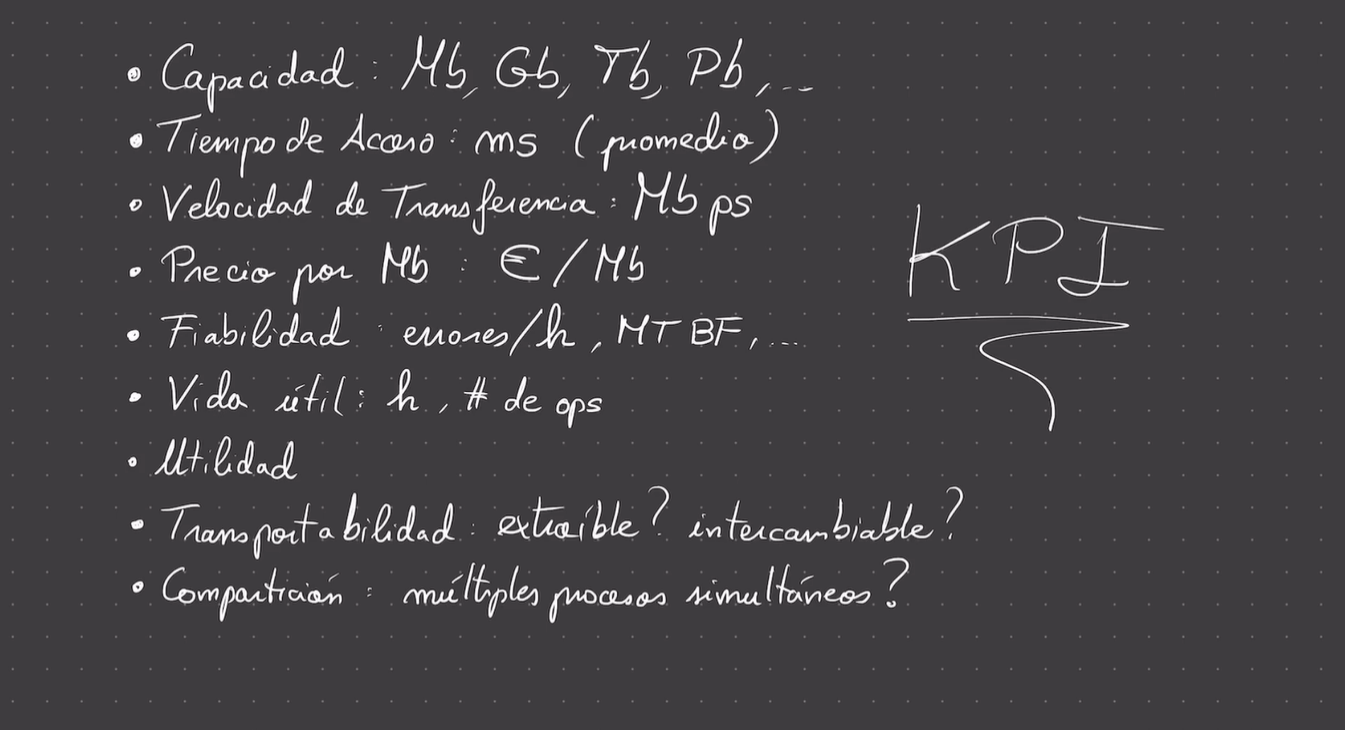 • Capacidad : Mb, Gb, Tb, Pb, ...
• Tiempo de Acceso : ms (promedio)
• Velocidad de Transferencia : Mbps
• Precio por Mb : €/Mb
• Fiabilidad : errores/h, MTBF, ...
• Vida útil : h, # de ops
• Utilidad
• Transportabilidad : extraíble? intercambiable?
• Compartición : múltiples procesos simultáneos?
KPI